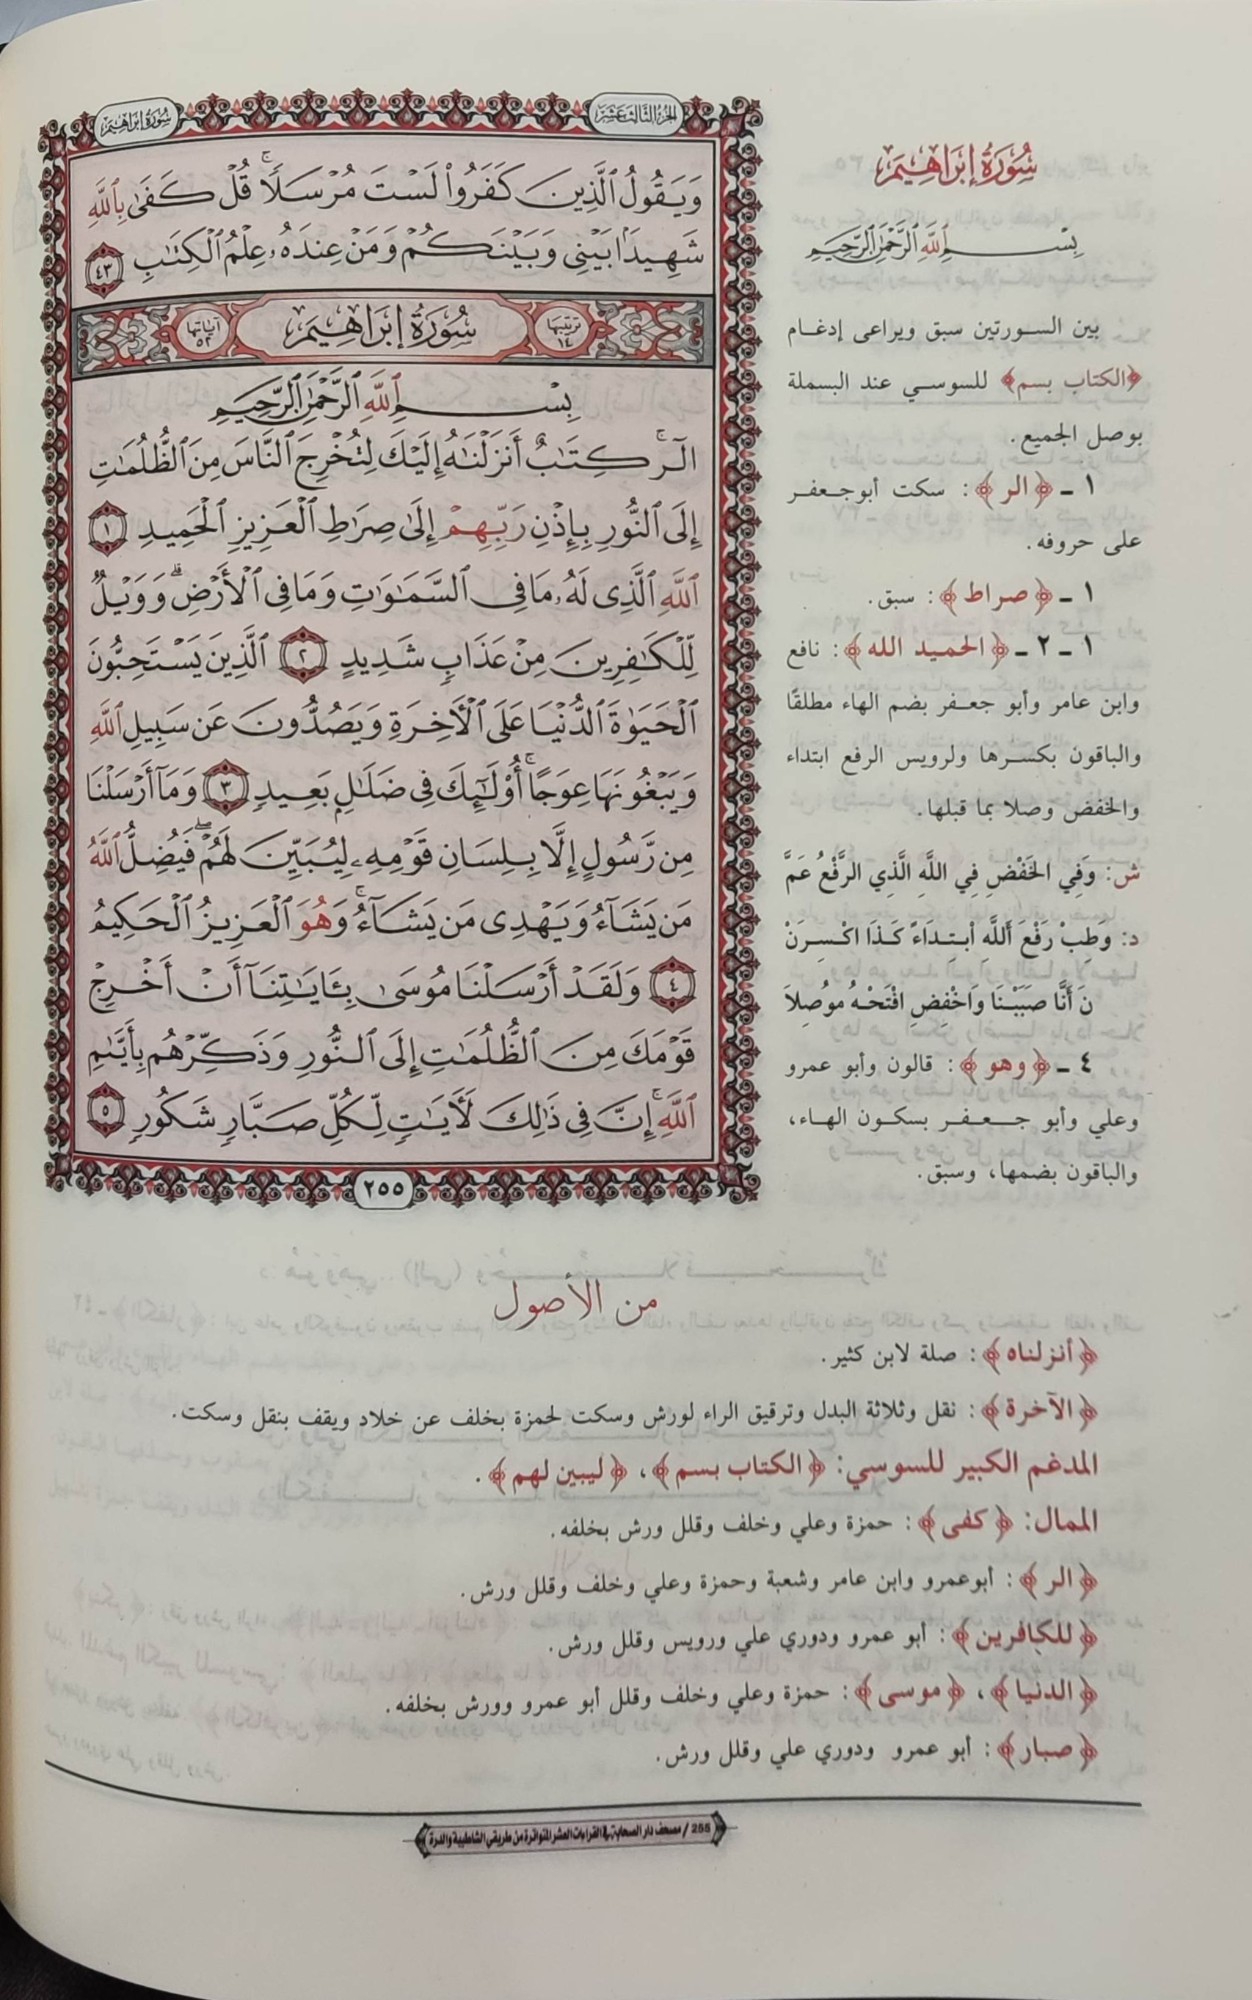 سُورَةُ إِبْرَاهِيمَ
الجُزْءُ الثَّالِثَ عَشَرَ
وَيَقُولُ ٱلَّذِينَ كَفَرُواْ لَسْتَ مُرْسَلًاۚ قُلْ كَفَىٰ بِٱللَّهِ
شَهِيدَۢا بَيْنِى وَبَيْنَكُمْ وَمَنْ عِندَهُۥ عِلْمُ ٱلْكِتَٰبِ ٤٣
ترتيبها ١٤ سُورَةُ إِبْرَاهِيمَ آياتها ٥٢
بِسْمِ ٱللَّهِ ٱلرَّحْمَٰنِ ٱلرَّحِيمِ
الٓرۚ كِتَٰبٌ أَنزَلْنَٰهُ إِلَيْكَ لِتُخْرِجَ ٱلنَّاسَ مِنَ ٱلظُّلُمَٰتِ
إِلَى ٱلنُّورِ بِإِذْنِ رَبِّهِمْ إِلَىٰ صِرَٰطِ ٱلْعَزِيزِ ٱلْحَمِيدِ ١
ٱللَّهِ ٱلَّذِى لَهُۥ مَا فِى ٱلسَّمَٰوَٰتِ وَمَا فِى ٱلْأَرْضِۗ وَوَيْلٌ
لِّلْكَٰفِرِينَ مِنْ عَذَابٍ شَدِيدٍ ٢ ٱلَّذِينَ يَسْتَحِبُّونَ
ٱلْحَيَوٰةَ ٱلدُّنْيَا عَلَى ٱلْأٓخِرَةِ وَيَصُدُّونَ عَن سَبِيلِ ٱللَّهِ
وَيَبْغُونَهَا عِوَجًاۚ أُوْلَٰٓئِكَ فِى ضَلَٰلٍۭ بَعِيدٍ ٣ وَمَآ أَرْسَلْنَا
مِن رَّسُولٍ إِلَّا بِلِسَانِ قَوْمِهِۦ لِيُبَيِّنَ لَهُمْۖ فَيُضِلُّ ٱللَّهُ
مَن يَشَآءُ وَيَهْدِى مَن يَشَآءُۚ وَهُوَ ٱلْعَزِيزُ ٱلْحَكِيمُ
٤ وَلَقَدْ أَرْسَلْنَا مُوسَىٰ بِـَٔايَٰتِنَآ أَنْ أَخْرِجْ
قَوْمَكَ مِنَ ٱلظُّلُمَٰتِ إِلَى ٱلنُّورِ وَذَكِّرْهُم بِأَيَّىٰمِ
ٱللَّهِۚ إِنَّ فِى ذَٰلِكَ لَأٓيَٰتٍ لِّكُلِّ صَبَّارٍ شَكُورٍ ٥
٢٥٥
سُورَةُ إِبْرَاهِيمَ
بِسْمِ ٱللَّهِ ٱلرَّحْمَٰنِ ٱلرَّحِيمِ
بين السورتين سبق ويراعى إدغام
﴿الكتاب بسم﴾ للسوسي عند البسملة
بوصل الجميع.
١ ـ ﴿الر﴾: سكت أبوجعفر
على حروفه.
١ ـ ﴿صراط﴾: سبق.
١ ـ ٢ ـ ﴿الحميد الله﴾: نافع
وابن عامر وأبو جعفر بضم الهاء مطلقًا
والباقون بكسرها ولرويس الرفع ابتداء
والخفض وصلا بما قبلها.
ش: وَفِي الخَفْضِ فِي اللَّهِ الَّذِي الرَّفْعُ عَمَّ
د: وَطِبْ رَفْعَ أَللَّهِ أبتِدَاءً كَذَا اكْسِرَنْ
نَ أَنَّا صَبَبْنَا وَاخْفِضِ افْتَحْهُ مُوُصِلَا
٤ ـ ﴿وهو﴾: قالون وأبو عمرو
وعلي وأبو جعفر بسكون الهاء،
والباقون بضمها، وسبق.
من الأصول
﴿أنزلناه﴾: صلة لابن كثير.
﴿الآخرة﴾: نقل وثلاثة البدل وترقيق الراء لورش وسكت لحمزة بخلف عن خلاد ويقف بنقل وسكت.
المدغم الكبير للسوسي: ﴿الكتاب بسم﴾، ﴿ليبين لهم﴾.
الممال: ﴿كفى﴾: حمزة وعلي وخلف وقلل ورش بخلفه.
﴿الر﴾: أبوعمرو وابن عامر وشعبة وحمزة وعلي وخلف وقلل ورش.
﴿للكافرين﴾: أبو عمرو ودوري علي ورويس وقلل ورش.
﴿الدنيا﴾، ﴿موسى﴾: حمزة وعلي وخلف وقلل أبو عمرو وورش بخلفه.
﴿صبار﴾: أبو عمرو ودوري علي وقلل ورش.
255 / مصحف دار الصحابة في القراءات العشر المتواترة من طريقي الشاطبية والدرة